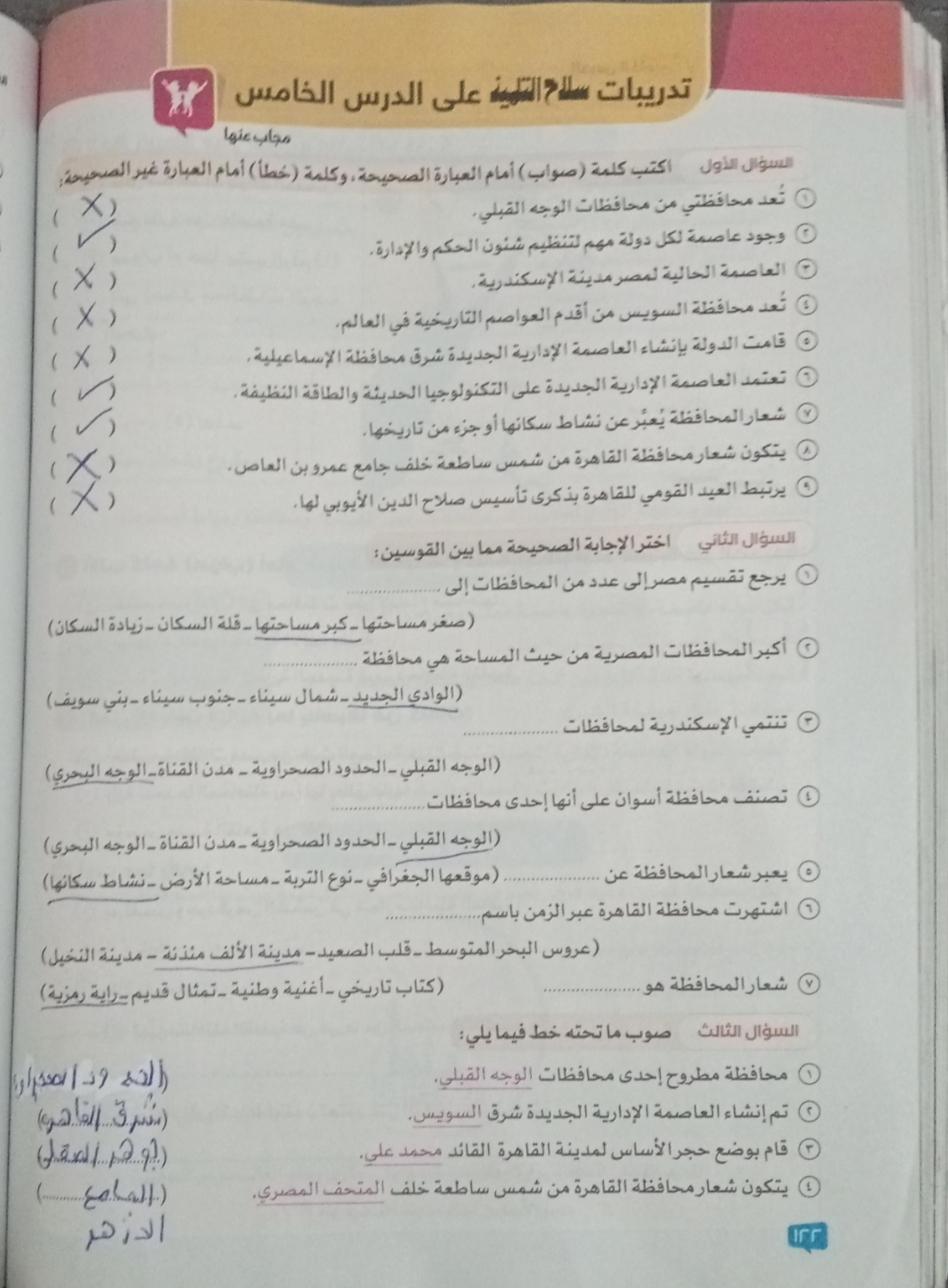 تدريبات سلاح التلميذ على الدرس الخامس
مجاب عنها
السؤال الأول اكتب كلمة (صواب) أمام العبارة الصحيحة، وكلمة (خطأ) أمام العبارة غير الصحيحة:
١ تُعد محافظتي من محافظات الوجه القبلي. (X)
٢ وجود عاصمة لكل دولة مهم لتنظيم شئون الحكم والإدارة. (✓)
٣ العاصمة الحالية لمصر مدينة الإسكندرية. (X)
٤ تُعد محافظة السويس من أقدم العواصم التاريخية في العالم. (X)
٥ قامت الدولة بإنشاء العاصمة الإدارية الجديدة شرق محافظة الإسماعيلية. (X)
٦ تعتمد العاصمة الإدارية الجديدة على التكنولوجيا الحديثة والطاقة النظيفة. (✓)
٧ شعار المحافظة يُعبِّر عن نشاط سكانها أو جزء من تاريخها. (✓)
٨ يتكون شعار محافظة القاهرة من شمس ساطعة خلف جامع عمرو بن العاص. (X)
٩ يرتبط العيد القومي للقاهرة بذكرى تأسيس صلاح الدين الأيوبي لها. (X)
السؤال الثاني اختر الإجابة الصحيحة مما بين القوسين:
١ يرجع تقسيم مصر إلى عدد من المحافظات إلى ....................
(صغر مساحتها – كبر مساحتها – قلة السكان – زيادة السكان)
٢ أكبر المحافظات المصرية من حيث المساحة هي محافظة ....................
(الوادي الجديد – شمال سيناء – جنوب سيناء – بني سويف)
٣ تنتمي الإسكندرية لمحافظات ....................
(الوجه القبلي – الحدود الصحراوية – مدن القناة – الوجه البحري)
٤ تصنف محافظة أسوان على أنها إحدى محافظات ....................
(الوجه القبلي – الحدود الصحراوية – مدن القناة – الوجه البحري)
٥ يعبر شعار المحافظة عن .................... (موقعها الجغرافي – نوع التربة – مساحة الأرض – نشاط سكانها)
٦ اشتهرت محافظة القاهرة عبر الزمن باسم ....................
(عروس البحر المتوسط – قلب الصعيد – مدينة الألف مئذنة – مدينة النخيل)
٧ شعار المحافظة هو .................... (كتاب تاريخي – أغنية وطنية – تمثال قديم – راية رمزية)
السؤال الثالث صوب ما تحته خط فيما يلي:
١ محافظة مطروح إحدى محافظات الوجه القبلي.
٢ تم إنشاء العاصمة الإدارية الجديدة شرق السويس. (شرق القاهره)
٣ قام بوضع حجر الأساس لمدينة القاهرة القائد محمد علي. (جوهر الصقلي)
٤ يتكون شعار محافظة القاهرة من شمس ساطعة خلف المتحف المصري. (الجامع)
الازهر
١٢٢